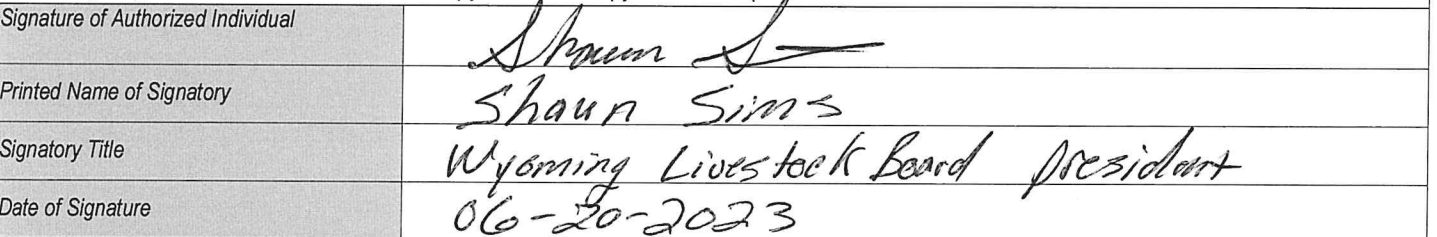 Signature of Authorized Individual Shaun S
Printed Name of Signatory Shaun Sims
Signatory Title Wyoming Livestock Board president
Date of Signature 06-20-2023